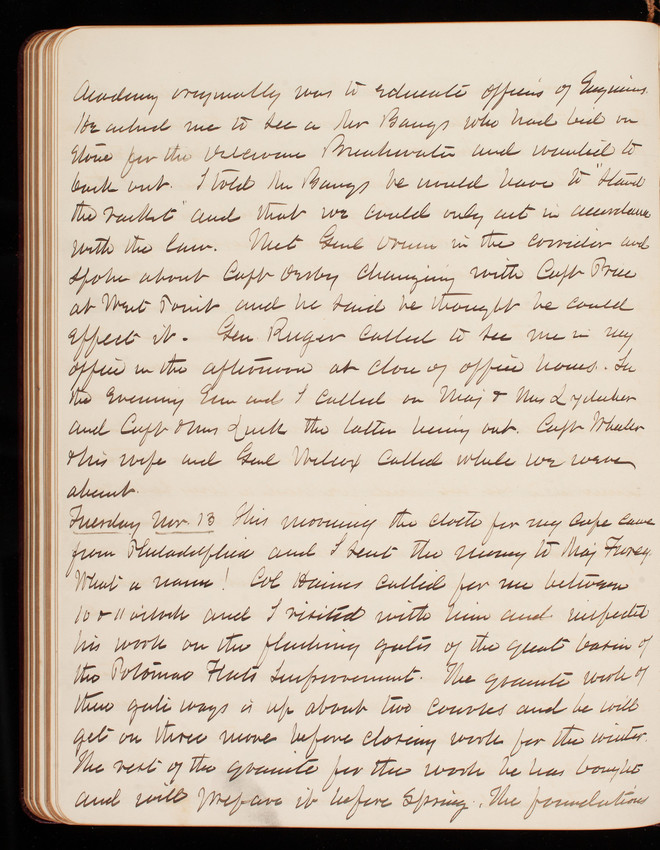 Academy originally was to educate officers of Engineers.
He asked me to see a Mr Bangs who had bid on
stone for the Delaware Breakwater and wanted to
back out. I told Mr Bangs he would have to "stand
the racket" and that we could only act in accordance
with the law. Met Genl Drum in the corridor and
spoke about Capt Derby changing with Capt Price
at West Point and he said he thought he could
effect it. Gen. Ruger called to see me in my
office in the afternoon at close of office hours. In
the evening Em and I called on Maj & Mrs Lydecker
and Capt & Mrs Lusk the latter being out. Capt Wheeler
& his wife and Genl Wilcox called while we were
absent.
Tuesday Nov. 13 This morning the cloth for my cape came
from Philadelphia and I sent the money to Maj Furey.
What a name! Col Hains called for me between
10 & 11 o'clock and I visited with him and inspected
his work on the flushing gates of the great basin of
the Potomac Flats Improvement. The granite work of
these gate ways is up about two courses and he will
get on three more before closing work for the winter.
The rest of the granite for this work he has bought
and will prepare it before spring. The foundations